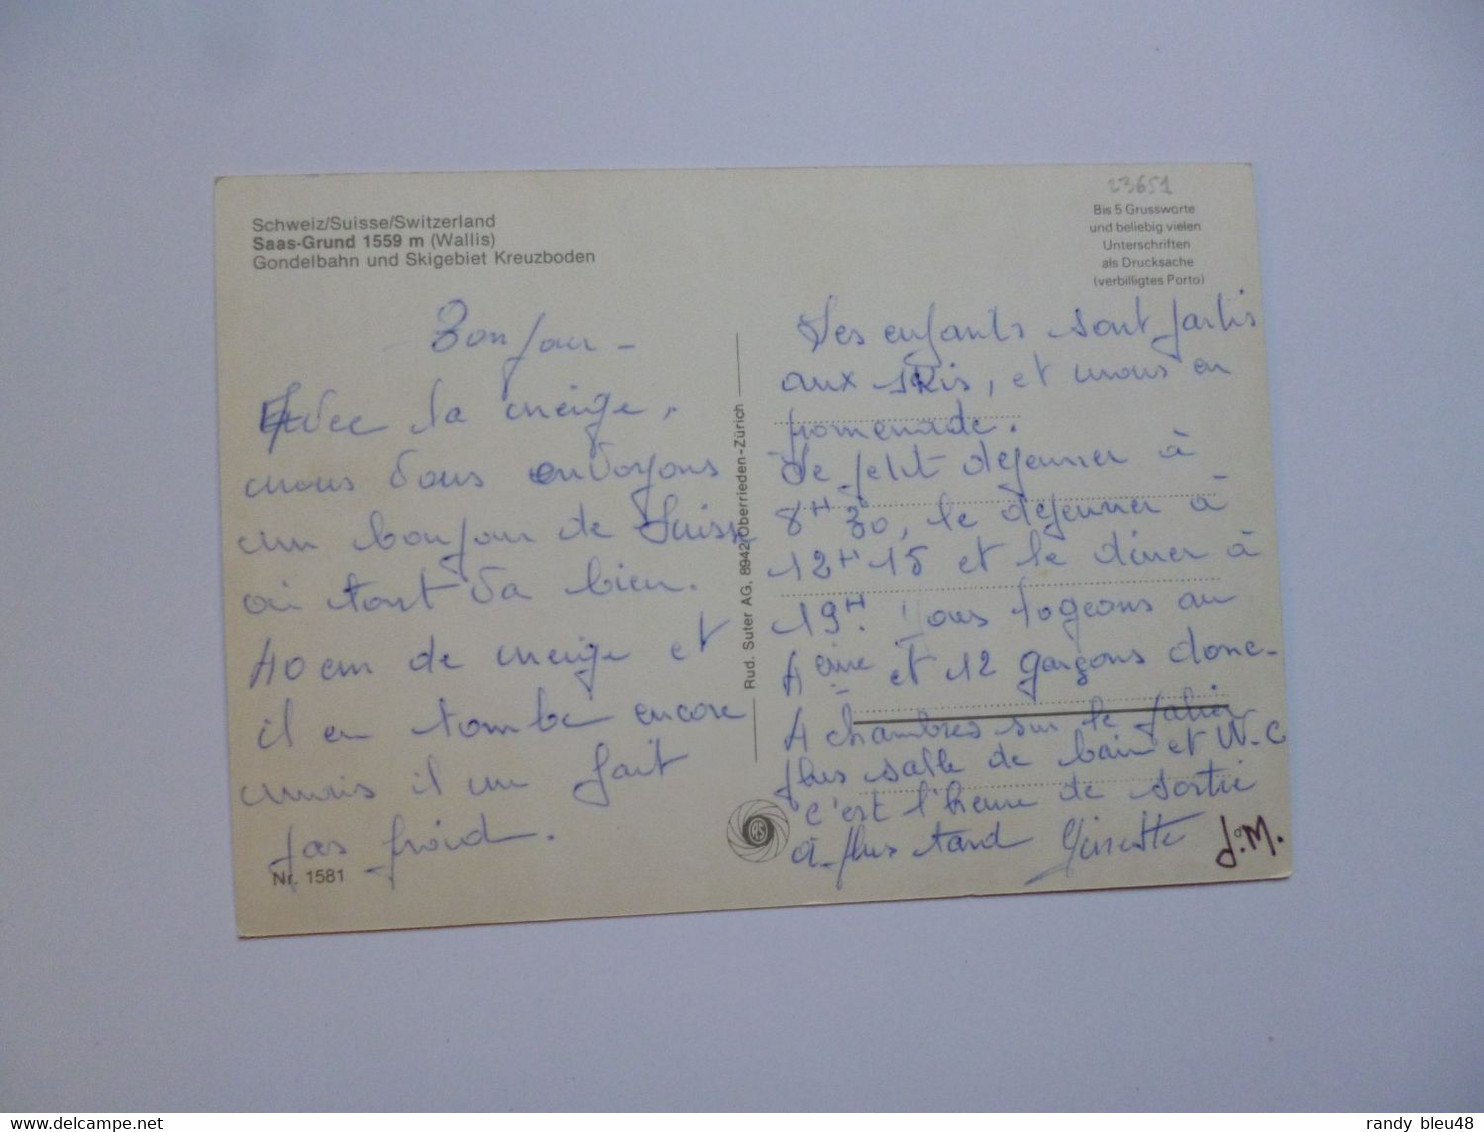 Schweiz/Suisse/Switzerland
Saas-Grund 1559 m (Wallis)
Gondelbahn und Skigebiet Kreuzboden
23651
Bis 5 Grussworte
und beliebig vielen
Unterschriften
als Drucksache
(verbilligtes Porto)
Bonjour -
Avec la neige,
nous vous envoyons
un bonjour de Suisse
où tout va bien.
40 cm de neige et
il en tombe encore
mais il ne fait
pas froid.
Nr. 1581
Rud. Suter AG, 8942 Oberrieden-Zürich
Les enfants sont partis
aux skis, et nous en
promenade.
Le petit dejeuner à
8H 30, le dejeuner à
12H15 et le diner à
19H. Nous logeons au
4eme et 12 garçons donc-
4 chambres sur le palier
plus salle de bain et W-C
c'est l'heure de sortie
à plus tard Ginette J.M.
delcampe.net
randy_bleu48